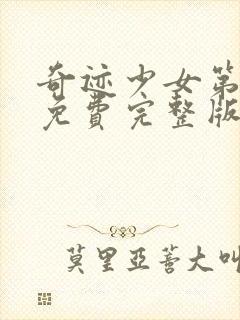 奇迹少女第
免費完整版
莫里亞蒼大叫